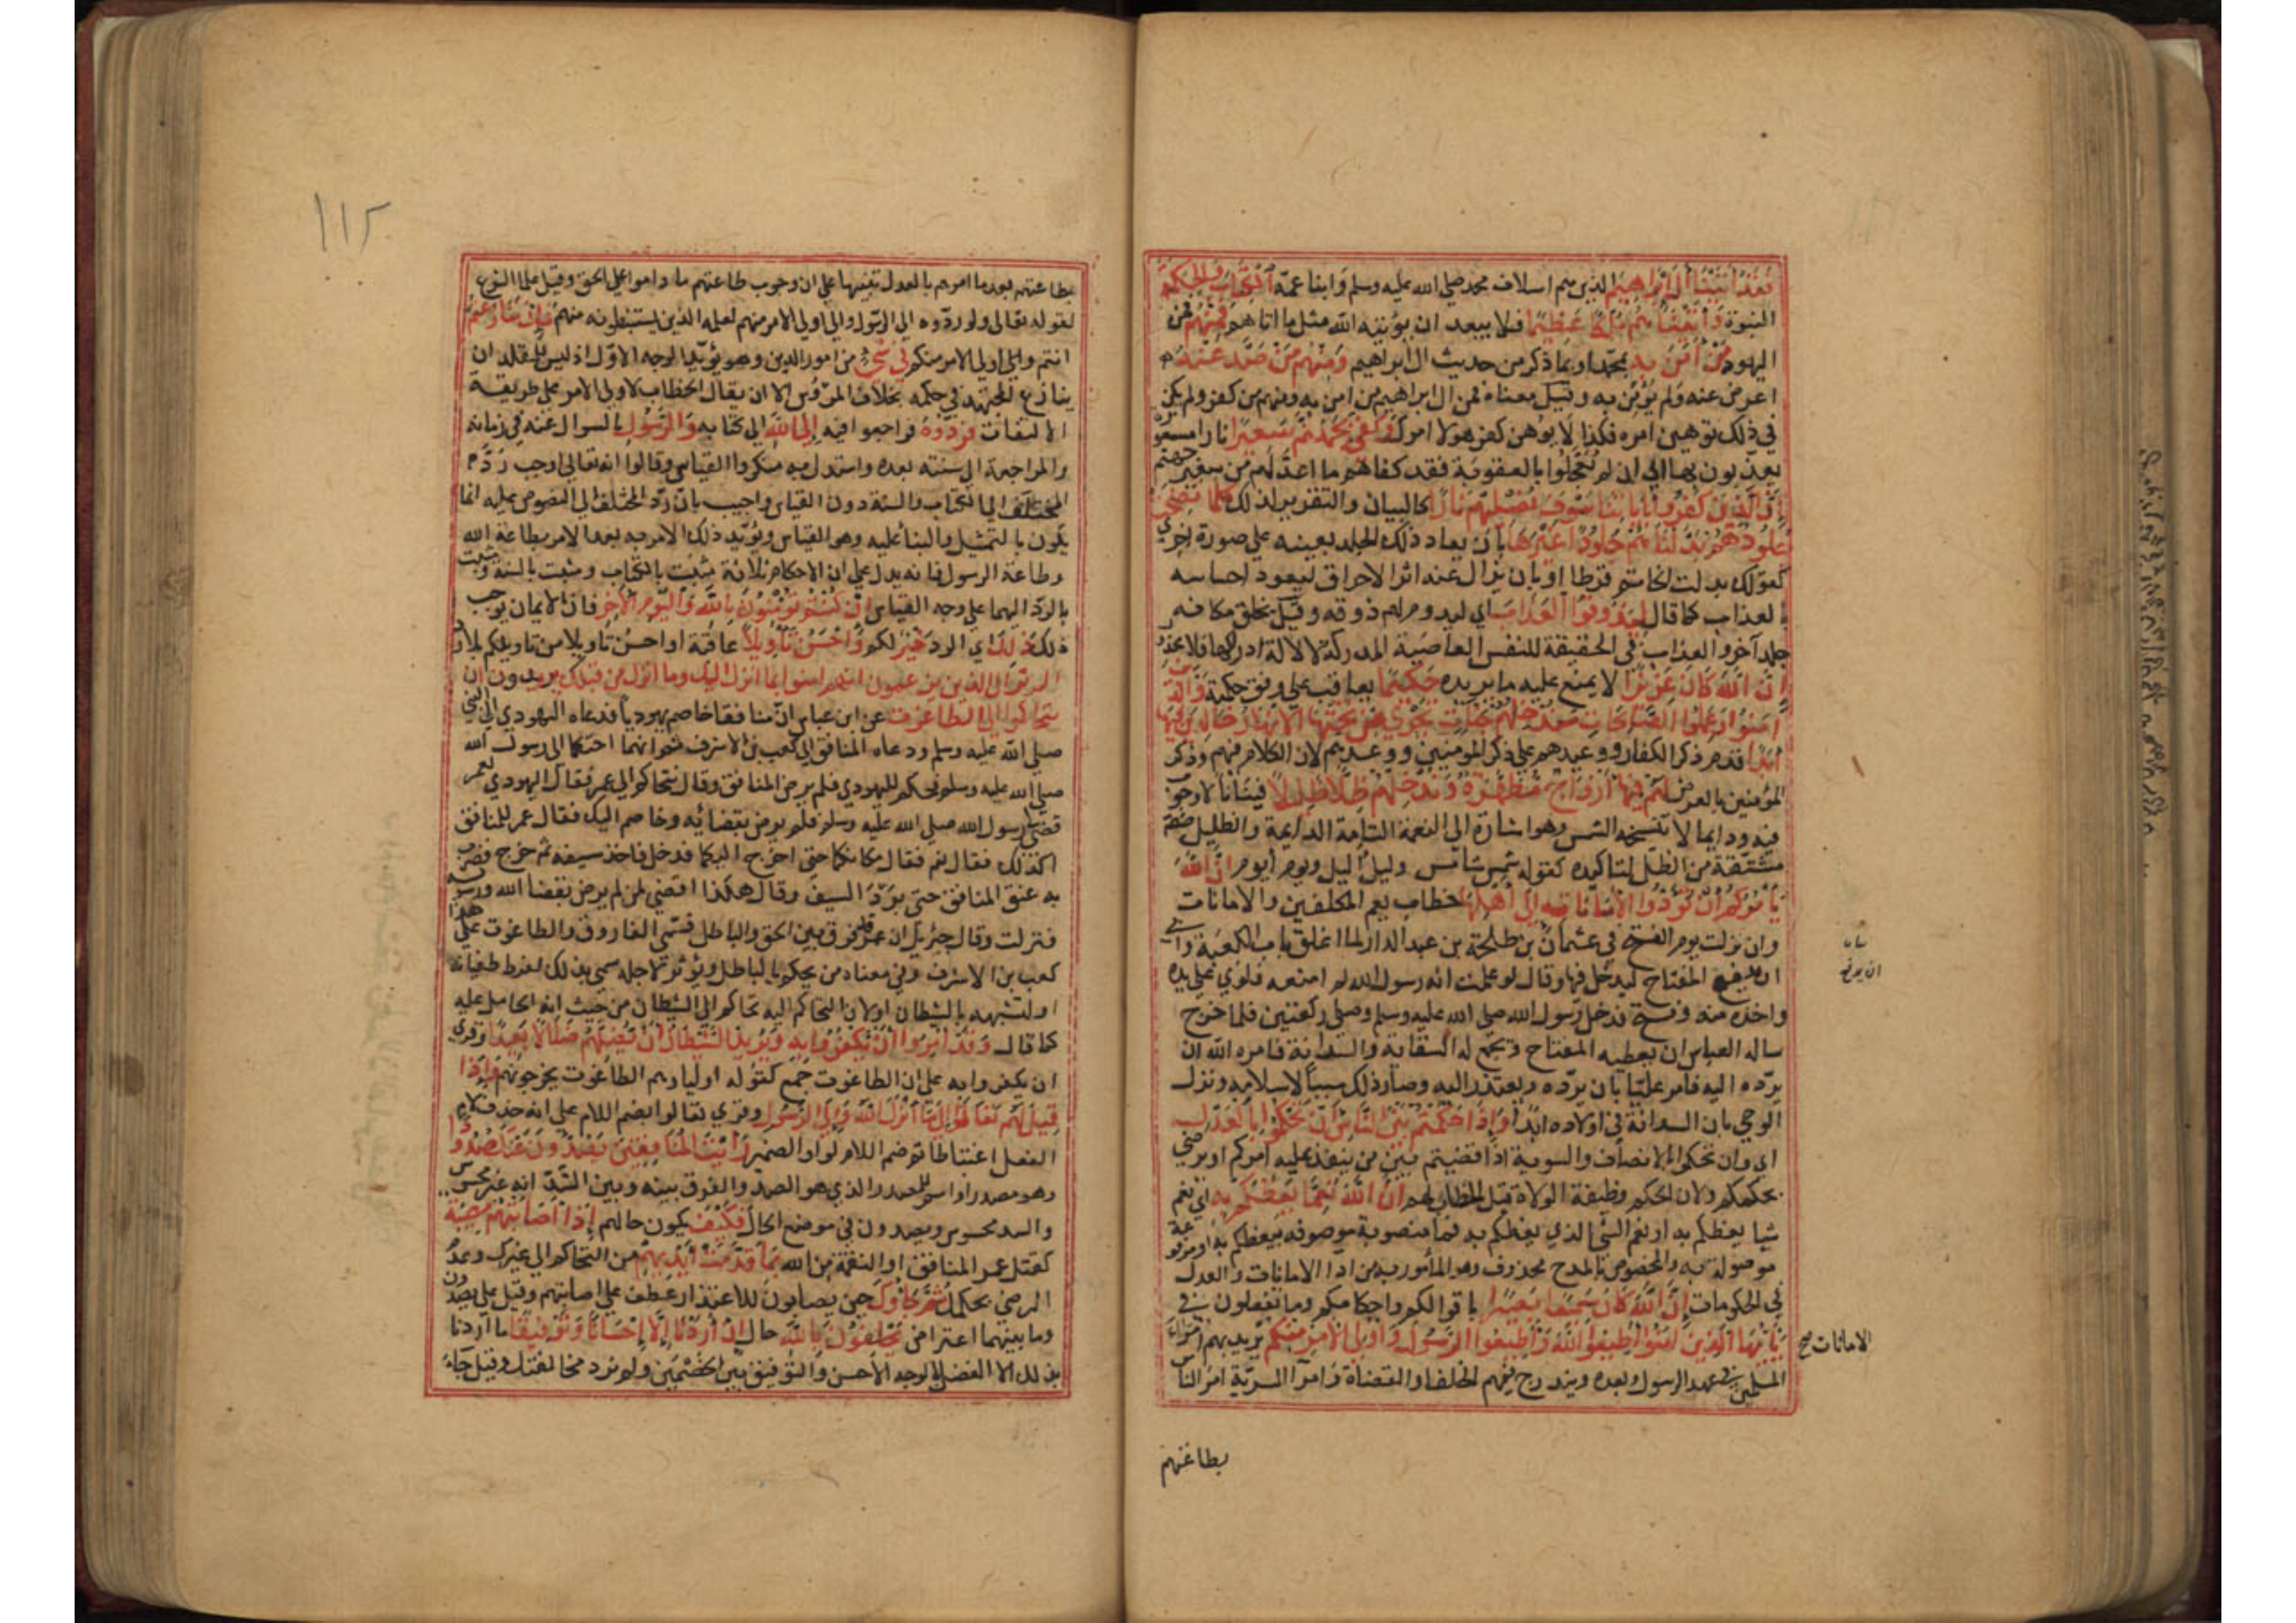 فقد اتينا ال ابراهيم الذين هم اسلاف محمد صلى الله عليه وسلم وابنا عمه الكتاب والحكمة
النبوة واتيناهم ملكا عظيما فلا يبعد ان يؤتيه الله مثل ما اتاهم فمنهم فمن
اليهود من امن به بمحمد او بما ذكر من حديث ال ابراهيم ومنهم من صد عنه
اعرض عنه ولم يؤمن به وقيل معناه فمن ال ابراهيم من امن به ومنهم من كفر ولم يكن
في ذلك توهين امره فكذا لا يوهن كفر هولا امرك وكفى بجهنم سعيرا نارا مسعورة
يعذبون بها اي ان لم يعجلوا بالعقوبة فقد كفاهم ما اعد لهم من سعير جهنم
ان الذين كفروا باياتنا سوف نصليهم نارا كالبيان والتقرير لذلك كلما نضجت
جلودهم بدلناهم جلودا غيرها بان يعاد ذلك الجلد بعينه على صورة اخرى
كقولك بدلت الخاتم قرطا او بان يزال عنه اثر الاحراق ليعود احساسه
بالعذاب كما قال ليذوقوا العذاب اي ليدوم لهم ذوقه وقيل يخلق مكانه
جلد آخر والعذاب في الحقيقة للنفس العاصية المدركة لا لالة ادراكها فلا محذور
ان الله كان عزيزا لا يمتنع عليه ما يريده حكيما يعاقب على وفق حكمته والذين
امنوا وعملوا الصالحات سندخلهم جنات تجري من تحتها الانهار خالدين فيها
ابدا قدم ذكر الكفار ووعيدهم على ذكر المومنين ووعدهم لان الكلام فيهم وذكر
المؤمنين بالعرض لهم فيها ازواج مطهرة وندخلهم ظلا ظليلا فينانا لا جوب
فيه ودايما لا تنسخه الشمس وهو اشارة الى النعمة التامة الدايمة والظليل صفة
مشتقة من الظل لتاكيده كقولهم شمس شامس وليل اليل ويوم ايوم ان الله
يأمركم ان تؤدوا الامانات الى اهلها خطاب يعم المكلفين والامانات
وان نزلت يوم الفتح في عثمان بن طلحة بن عبد الدار لما اغلق باب الكعبة وابى
ان يدفع المفتاح ليدخل فيها وقال لو علمت انه رسول الله لم امنعه فلوى علي يده
واخذه منه وفتح فدخل رسول الله صلى الله عليه وسلم وصلى ركعتين فلما خرج
ساله العباس ان يعطيه المفتاح ويجمع له السقاية والسدانة فامره الله ان
يرده اليه فامر عليا بان يرده ويعتذر اليه وصار ذلك سببا لاسلامه ونزل
الوحي بان السدانة في اولاده ابدا واذا حكمتم بين الناس ان تحكموا بالعدل
اي وان تحكموا بالانصاف والسوية اذا قضيتم بين من ينفذ عليه امركم او يرضى
بحكمكم ولان الحكم وظيفة الولاة قيل الخطاب لهم ان الله نعما يعظكم به اي نعم
شيا يعظكم به او نعم الشي الذي يعظكم به فما منصوبة موصوفة بيعظكم به او مرفوعة
موصولة به والمخصوص بالمدح محذوف وهو المأمور به من ادا الامانات والعدل
في الحكومات ان الله كان سميعا بصيرا باقوالكم واحكامكم وما تفعلون في
يا ايها الذين امنوا اطيعوا الله واطيعوا الرسول واولى الامر منكم يريد بهم امراء
المسلمين في عهد الرسول وبعده ويندرج فيهم الخلفا والقضاة وامرآ السرية امر الناس
ان يدفع
الامانات صح
بطاعتهم
١١٥
بطاعتهم بعد ما امرهم بالعدل تنبيها على ان وجوب طاعتهم ما داموا على الحق وقيل علما الشرع
لقوله تعالى ولو ردوه الى الرسول والى اولي الامر منهم لعلمه الذين يستنبطونه منهم فان تنازعتم
انتم واولي الامر منكم في شي من امور الدين وهو يؤيد الوجه الاول اذ ليس للمقلد ان
ينازع المجتهد في حكمه بخلاف المرؤس الا ان يقال الخطاب لاولي الامر على طريقة
الالتفات فردوه فراجعوا فيه الى الله الى كتابه والرسول بالسوال عنه في زمانه
والمراجعة الى سنته بعده واستدل به منكروا القياس وقالوا انه تعالى اوجب رد
المختلف الى الكتاب والسنة دون القياس واجيب بان رد المختلف الى المنصوص عليه انما
يكون بالتمثيل والبنا عليه وهو القياس ويؤيد ذلك الامر به بعد الامر بطاعة الله
وطاعة الرسول فانه يدل على ان الاحكام ثلاثة مثبت بالكتاب ومثبت بالسنة ومثبت
بالرد اليهما على وجه القياس ان كنتم تؤمنون بالله واليوم الآخر فان الايمان يوجب
ذلك ذلك اي الرد خير لكم واحسن تأويلا عاقبة او احسن تاويلا من تاويلكم بلا رد
الم تر الى الذين يزعمون انهم امنوا بما انزل اليك وما انزل من قبلك يريدون ان
يتحاكموا الى الطاغوت عن ابن عباس ان منافقا خاصم يهوديا فدعاه اليهودي الى النبي
صلى الله عليه وسلم ودعاه المنافق الى كعب بن الاشرف ثم انهما احتكما الى رسول الله
صلى الله عليه وسلم فحكم لليهودي فلم يرض المنافق وقال نتحاكم الى عمر فقال اليهودي لعمر
قضى لي رسول الله صلى الله عليه وسلم فلم يرض بقضائه وخاصم اليك فقال عمر للمنافق
اكذلك فقال نعم فقال مكانكما حتى اخرج اليكما فدخل فاخذ سيفه ثم خرج فضرب
به عنق المنافق حتى برد السيف وقال هكذا اقضي لمن لم يرض بقضا الله ورسوله
فنزلت وقال جبريل ان عمر فرق بين الحق والباطل فسمى الفاروق والطاغوت على هذا
كعب بن الاشرف وفي معناه من يحكم بالباطل ويؤثر لاجله سمي بذلك لفرط طغيانه
او لتشبهه بالشيطان او لان التحاكم اليه تحاكم الى الشيطان من حيث انه الحامل عليه
كما قال وقد امروا ان يكفروا به ويريد الشيطان ان يضلهم ضلالا بعيدا وقرئ
ان يكفروا به على ان الطاغوت جمع كقوله اولياؤهم الطاغوت يخرجونهم واذا
قيل لهم تعالوا الى ما انزل الله والى الرسول وقرئ تعالوا بضم اللام على انه حذف لام
الفعل اعتباطا ثم ضم اللام لواو الضمير رايت المنافقين يصدون عنك صدودا
وهو مصدر او اسم للمصدر الذي هو الصد والفرق بينه وبين السد انه غير محسوس
والسد محسوس ويصدون في موضع الحال فكيف يكون حالهم اذا اصابتهم مصيبة
كقتل عمر المنافق او النقمة من الله بما قدمت ايديهم من التحاكم الى غيرك وعدم
الرضى بحكمك ثم جاؤك حين يصابون للاعتذار عطف على اصابتهم وقيل على يصدون
وما بينهما اعتراض يحلفون بالله حال ان أردنا الا إحسانا وتوفيقا ما اردنا
بذلك الا الفصل بالوجه الاحسن والتوفيق بين الخصمين ولم نرد مخالفتك وقيل جاء